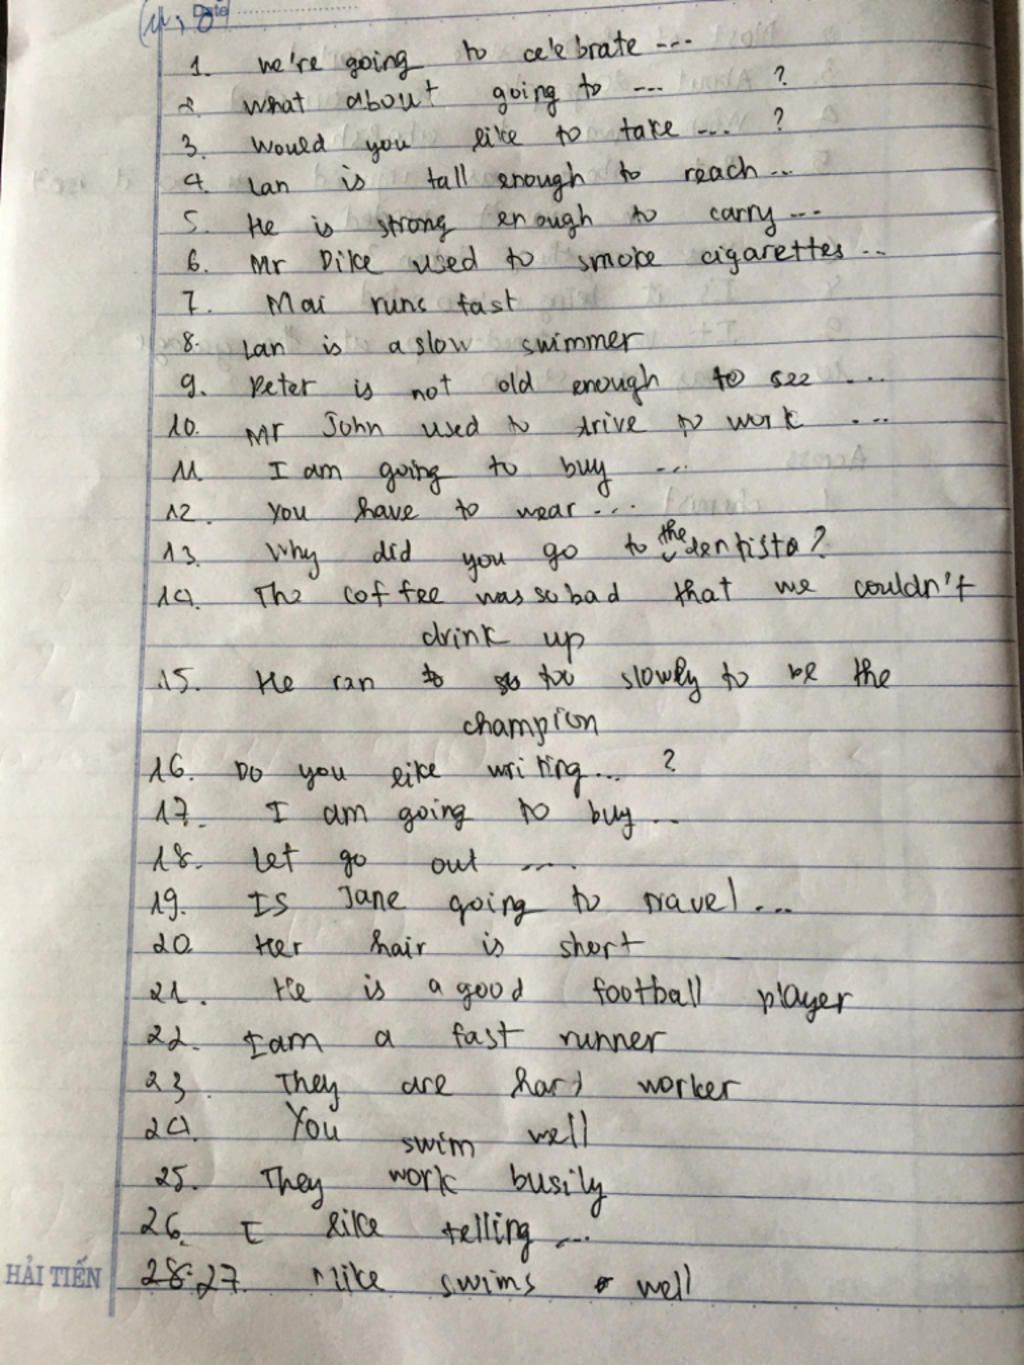 Date
1. We're going to celebrate ---
2. What about going to --- ?
3. Would you like to take --- ?
4. Lan is tall enough to reach ...
5. He is strong enough to carry ---
6. Mr Dike used to smoke cigarettes ..
7. Mai runs fast
8. Lan is a slow swimmer
9. Peter is not old enough to see ...
10. Mr John used to drive to work ...
11. I am going to buy ...
12. You have to wear ...
13. Why did you go to the dentista?
14. The coffee was so bad that we couldn't
drink up
15. He ran too slowly to be the
champion
16. Do you like writing ... ?
17. I am going to buy ..
18. Let go out ....
19. Is Jane going to travel ...
20. Her hair is short
21. He is a good football player
22. I am a fast runner
23. They are hard worker
24. You swim well
25. They work busily
26. I like telling ...
27. Mike swims well
HẢI TIẾN